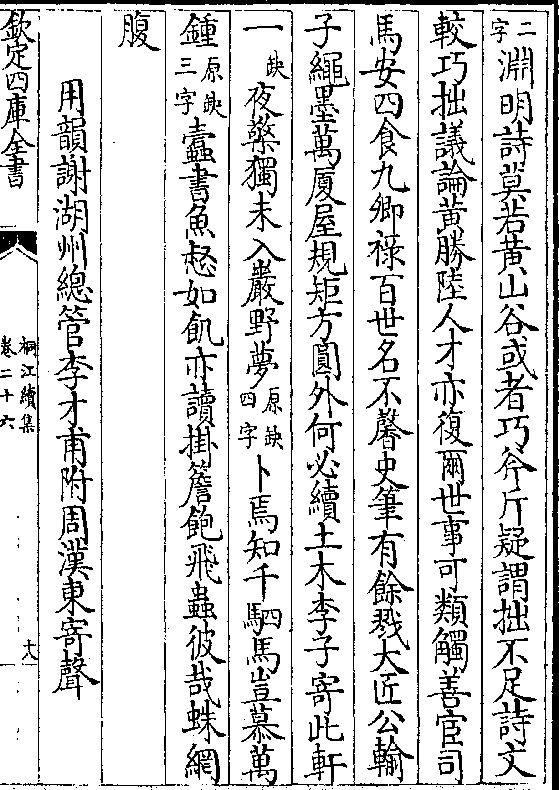 二字淵明詩莫若黄山谷或者巧斧斤疑謂拙不足詩文
較巧拙議論黄勝陸人才亦復爾世事可類觸善宦司
馬安四食九卿禄百世名不馨史筆有餘戮大匠公輸
子繩墨萬厦屋規矩方圓外何必續土木李子寄此軒
一缺夜藥獨未入巖野夢原缺四字卜焉知千駟馬豈慕萬
鍾原缺三字蠹書魚惄如飢亦讀掛簷飽飛蟲彼哉蛛網
腹
用韻謝湖州總管李才甫附周漢東寄聲
欽定四庫全書
桐江續集
卷二十六
十八